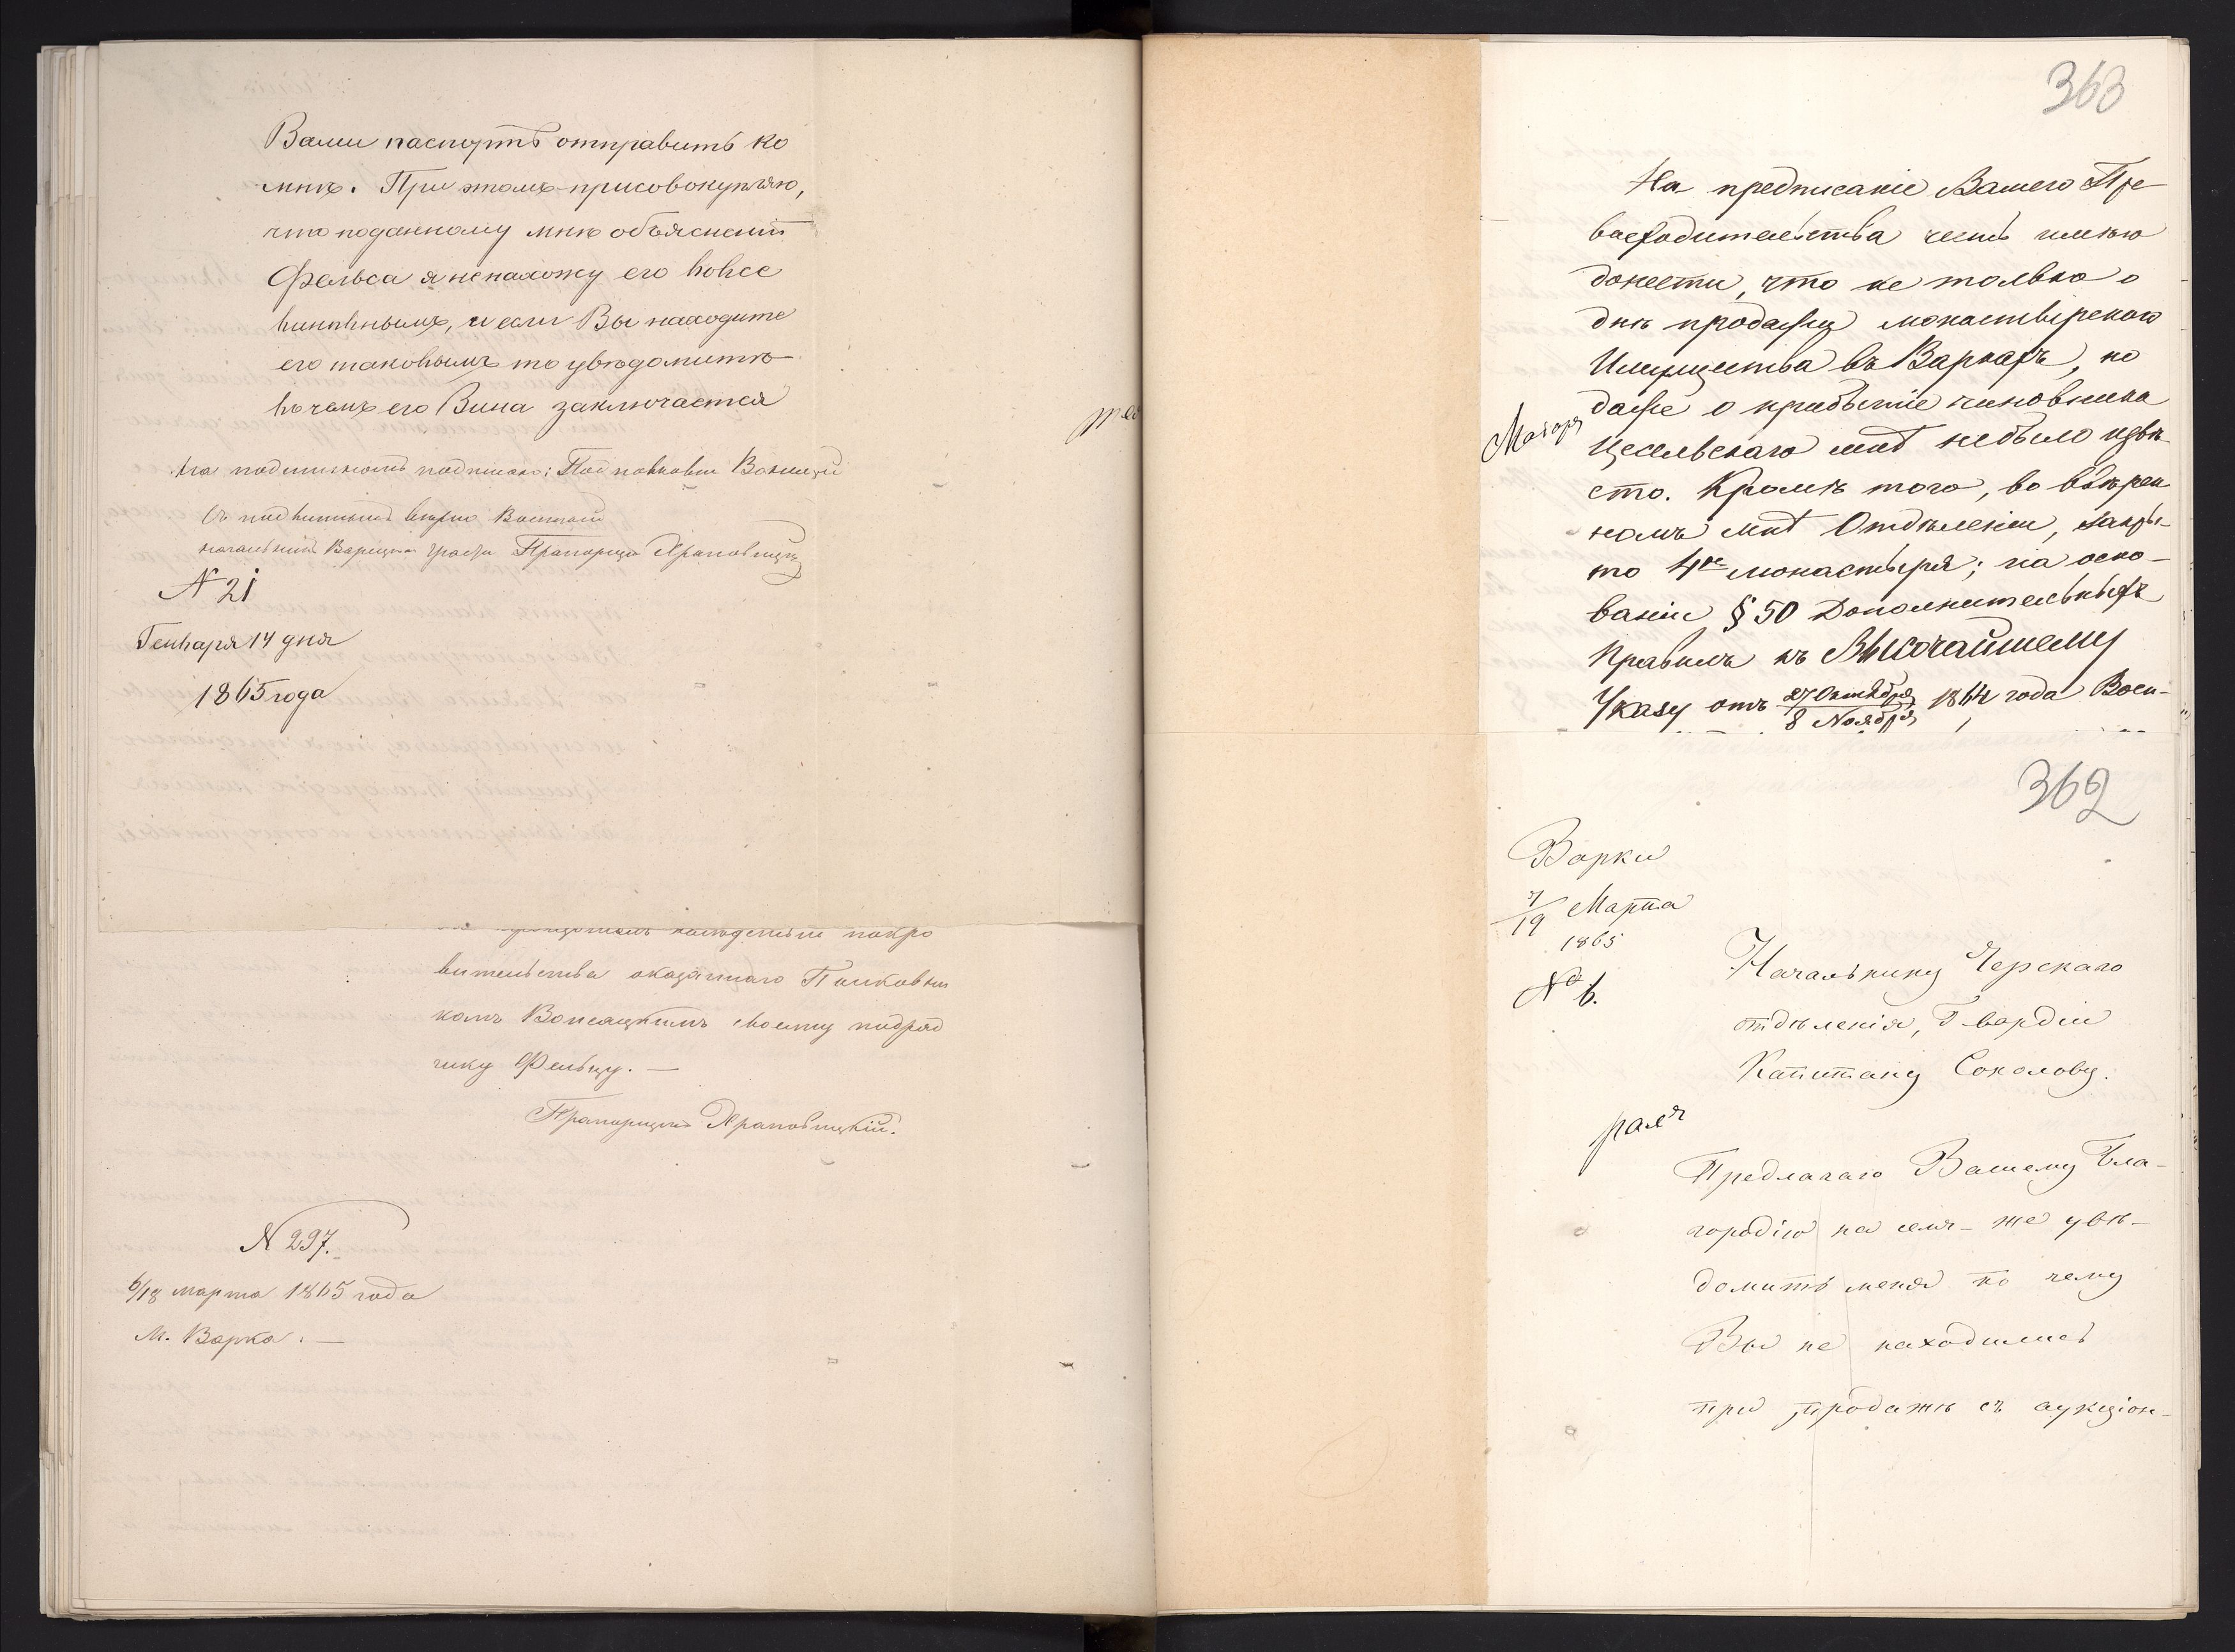 Вами паспортъ отправить ко
мнѣ. При этомъ присовокупляю,
что поданному мнѣ объясненію
Фельса я ненахожу его вовсе
виновнымъ, и если Вы находите
его таковымъ то увѣдомить
въ чемъ его Вина заключается
На подлинномъ подписано: Подполковн
Съ подлиннымъ вѣрно Военный
начальникъ Варецка Прапорщикъ Храповицкій
№ 21
Генваря 14 дня
1865 года
покро
вительства оказаннаго Полковни
комъ своему подряд
чику Фельцу. —
Прапорщикъ Храповицкій.
№ 297.
6/18 марта 1865 года
М. Варка. —
363
На предписаніе Вашего Пре
восходительства честь имѣю
донести, что не только о
днѣ продажи монастырскаго
Имущества въ Варкахъ, но
даже о прибытіе чиновника
Цесельскаго мнѣ небыло извѣ
стно. Кромѣ того, во ввѣрен
номъ мнѣ Отдѣленіи, закры-
то 4ре монастыря; на осно-
ваніи § 50 Дополнительныхъ
Правилъ къ Высочайшему
Указу отъ 27 Октября / 8 Ноября 1864 года Воен-
362
Варки
7/19 Марта
1865
№ 6.
Начальнику Черскаго
отдѣленія, Гвардіи
Капитану Соколову.
Предлагаю Вашему Бла-
городію на семъ-же увѣ-
домить меня по чему
Вы не находились
при продажѣ съ аукціон-